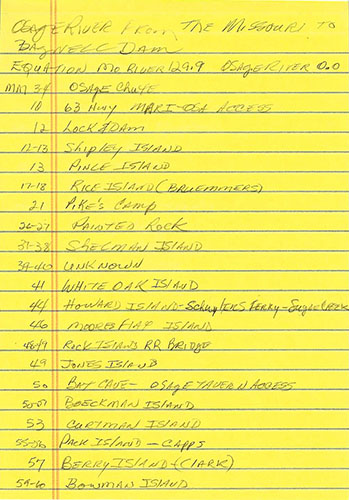 OSAGE RIVER FROM THE MISSOURI TO
BAGNELL DAM
EQUATION MO RIVER 129.9 OSAGE RIVER 0.0
MM
OSAGE
10 63 Hwy MARI-OSA ACCESS
12 LOCK & DAM
12-13 Shipley ISLAND
13 ISLAND
17-18 RICE ISLAND (BRUEMMERS)
21 PIKE'S CAMP
26-27 PAINTED ROCK
37-38 ISLAND
39-40 UNKNOWN
41 WHITE OAK ISLAND
44 HOWARD ISLAND - FERRY -
46 MOORES FLAT ISLAND
48-49 ROCK ISLAND RR BRIDGE
49 JONES ISLAND
50 BAT CAVE - OSAGE TAVERN ACCESS
BOECKMAN ISLAND
53 CURTMAN ISLAND
55-56 ISLAND - CAPPS
57 BERRY ISLAND - (CLARK)
59-60 BOWMAN ISLAND